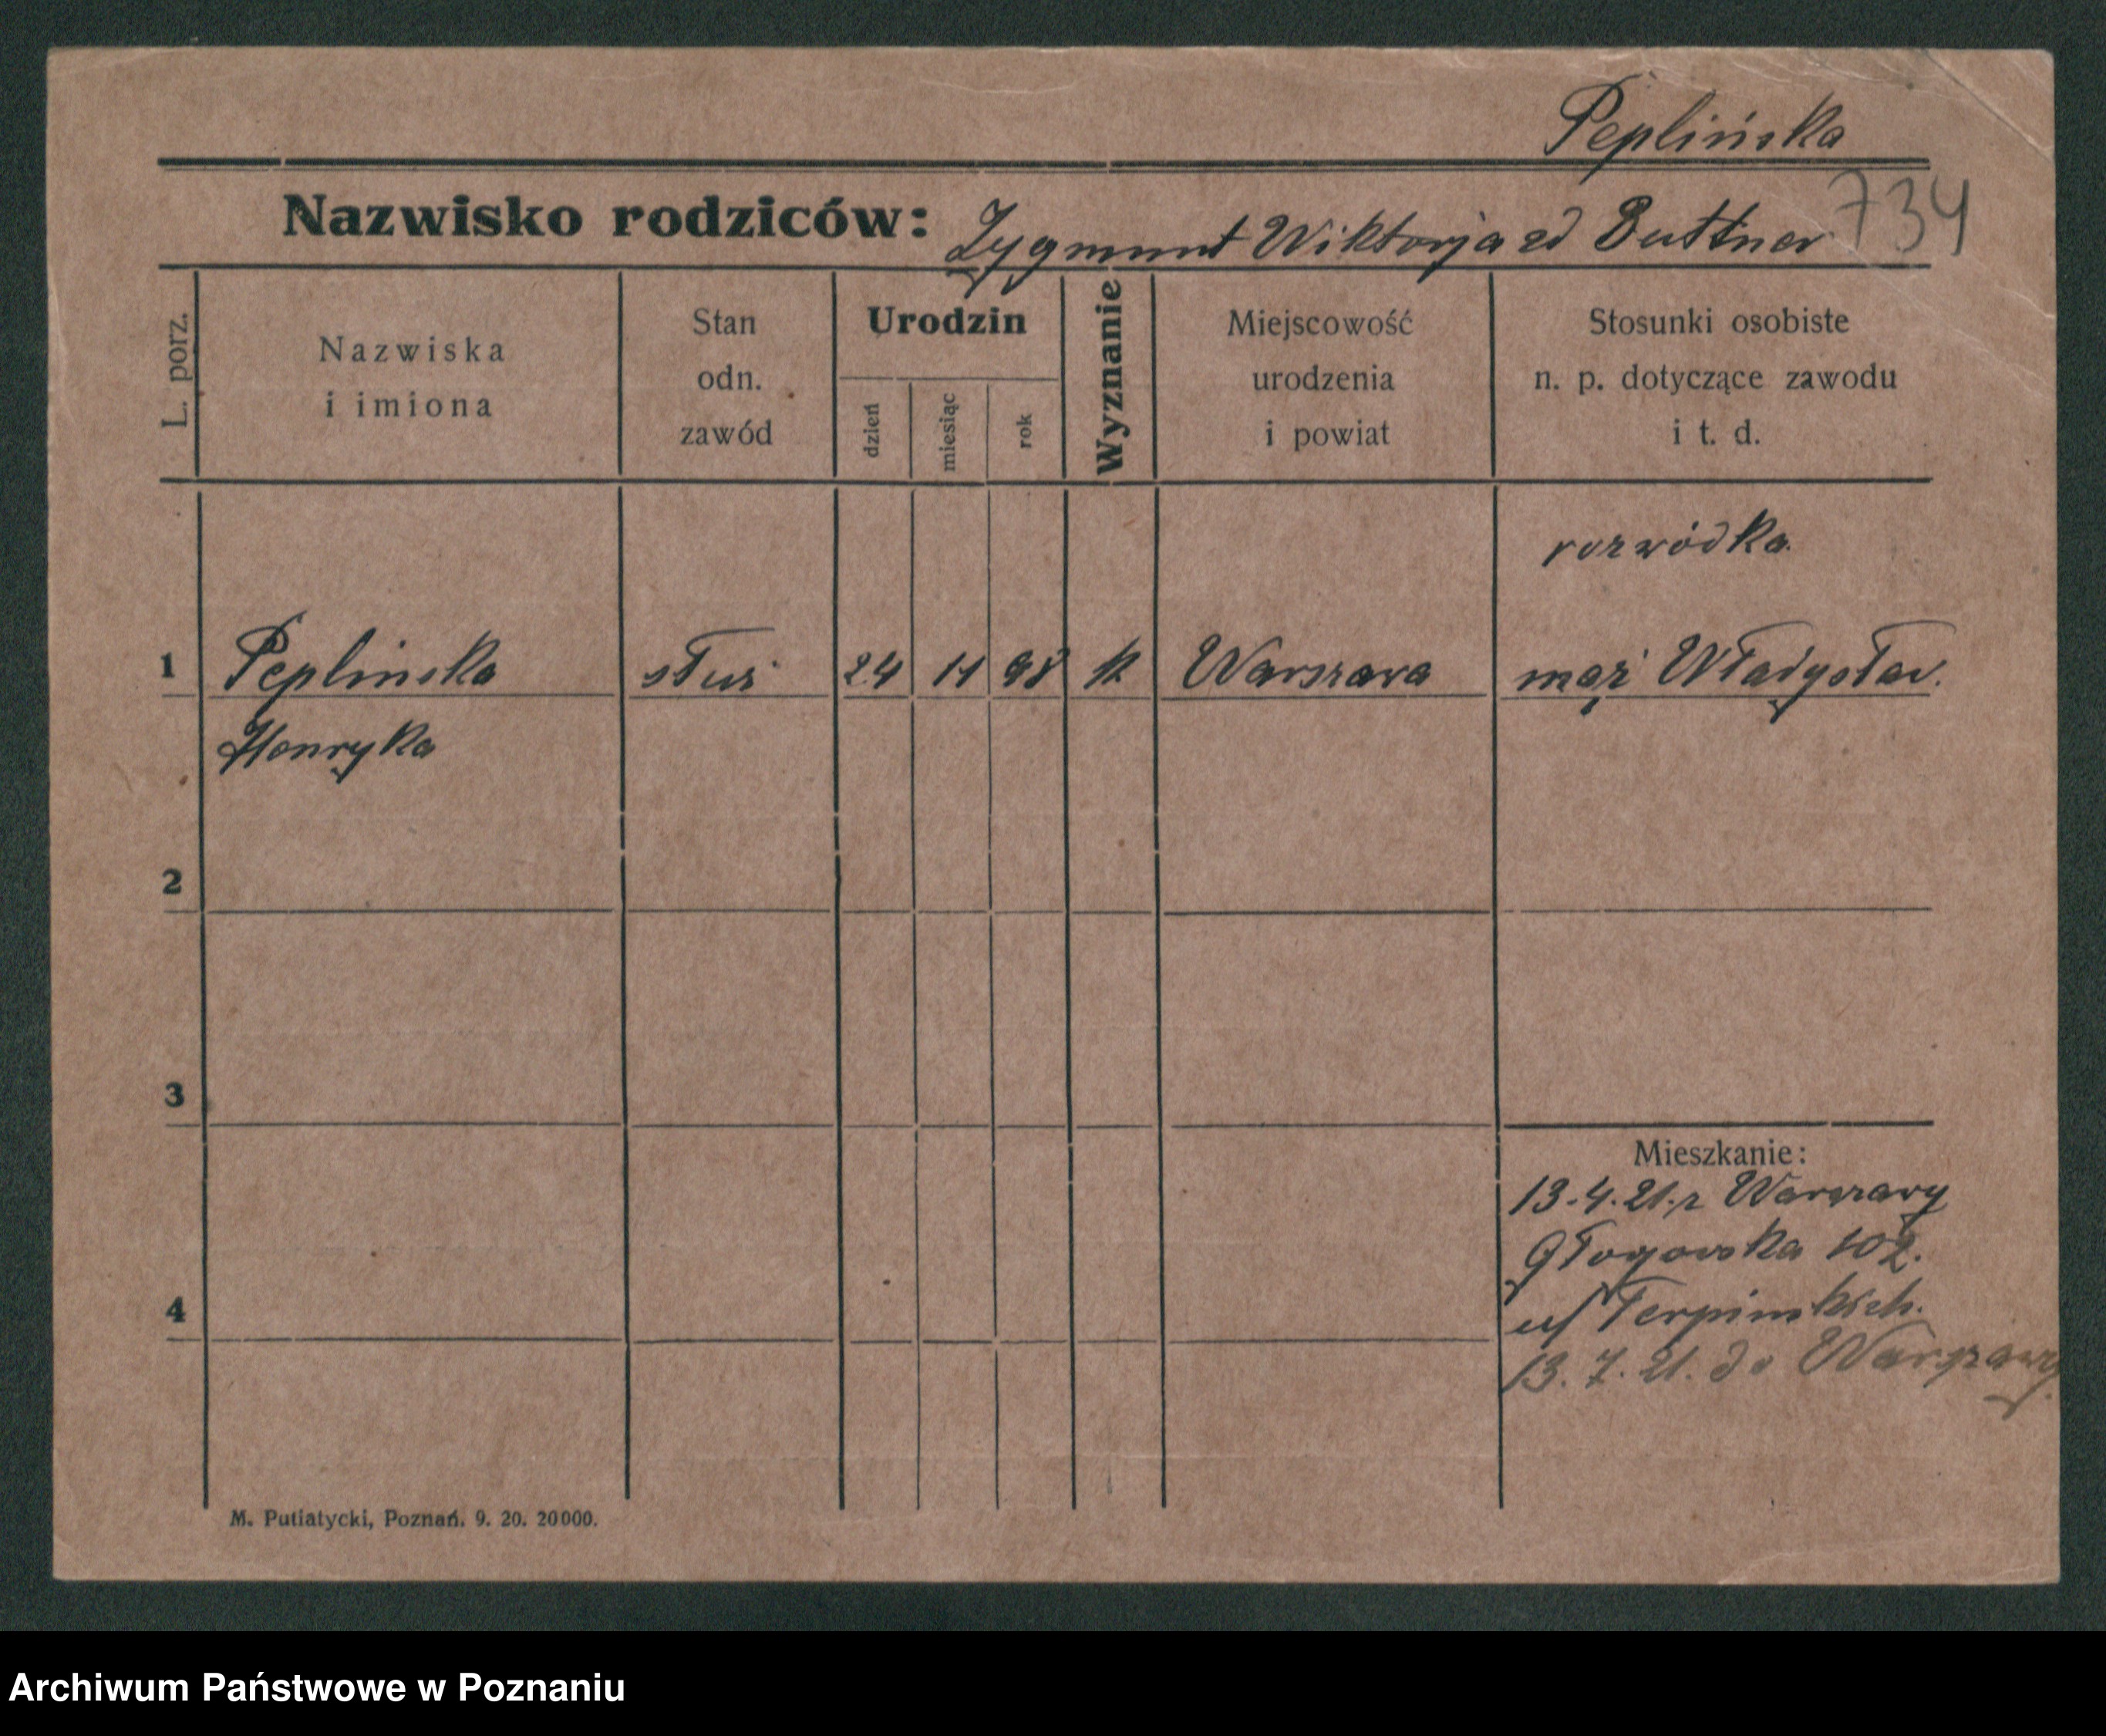 Peplińska
734
Nazwisko rodziców: Zygmunt Wiktorja zd Buttner
L. porz.
Nazwiska
i imiona
Stan
odn.
zawód
Urodzin
dzień
miesiąc
rok
Wyznanie
Miejscowość
urodzenia
i powiat
Stosunki osobiste
n. p. dotyczące zawodu
i t. d.
rozwódka.
1 Peplinska służ 24 11 98 k Warszawa mąż Władysław.
Henryka
2
3
4
Mieszkanie:
13.4.21. z Warszawy
Głogowska 102.
u/
13.7.21. do Warszawy.
M. Putiatycki, Poznań. 9. 20. 20000.
Archiwum Państwowe w Poznaniu